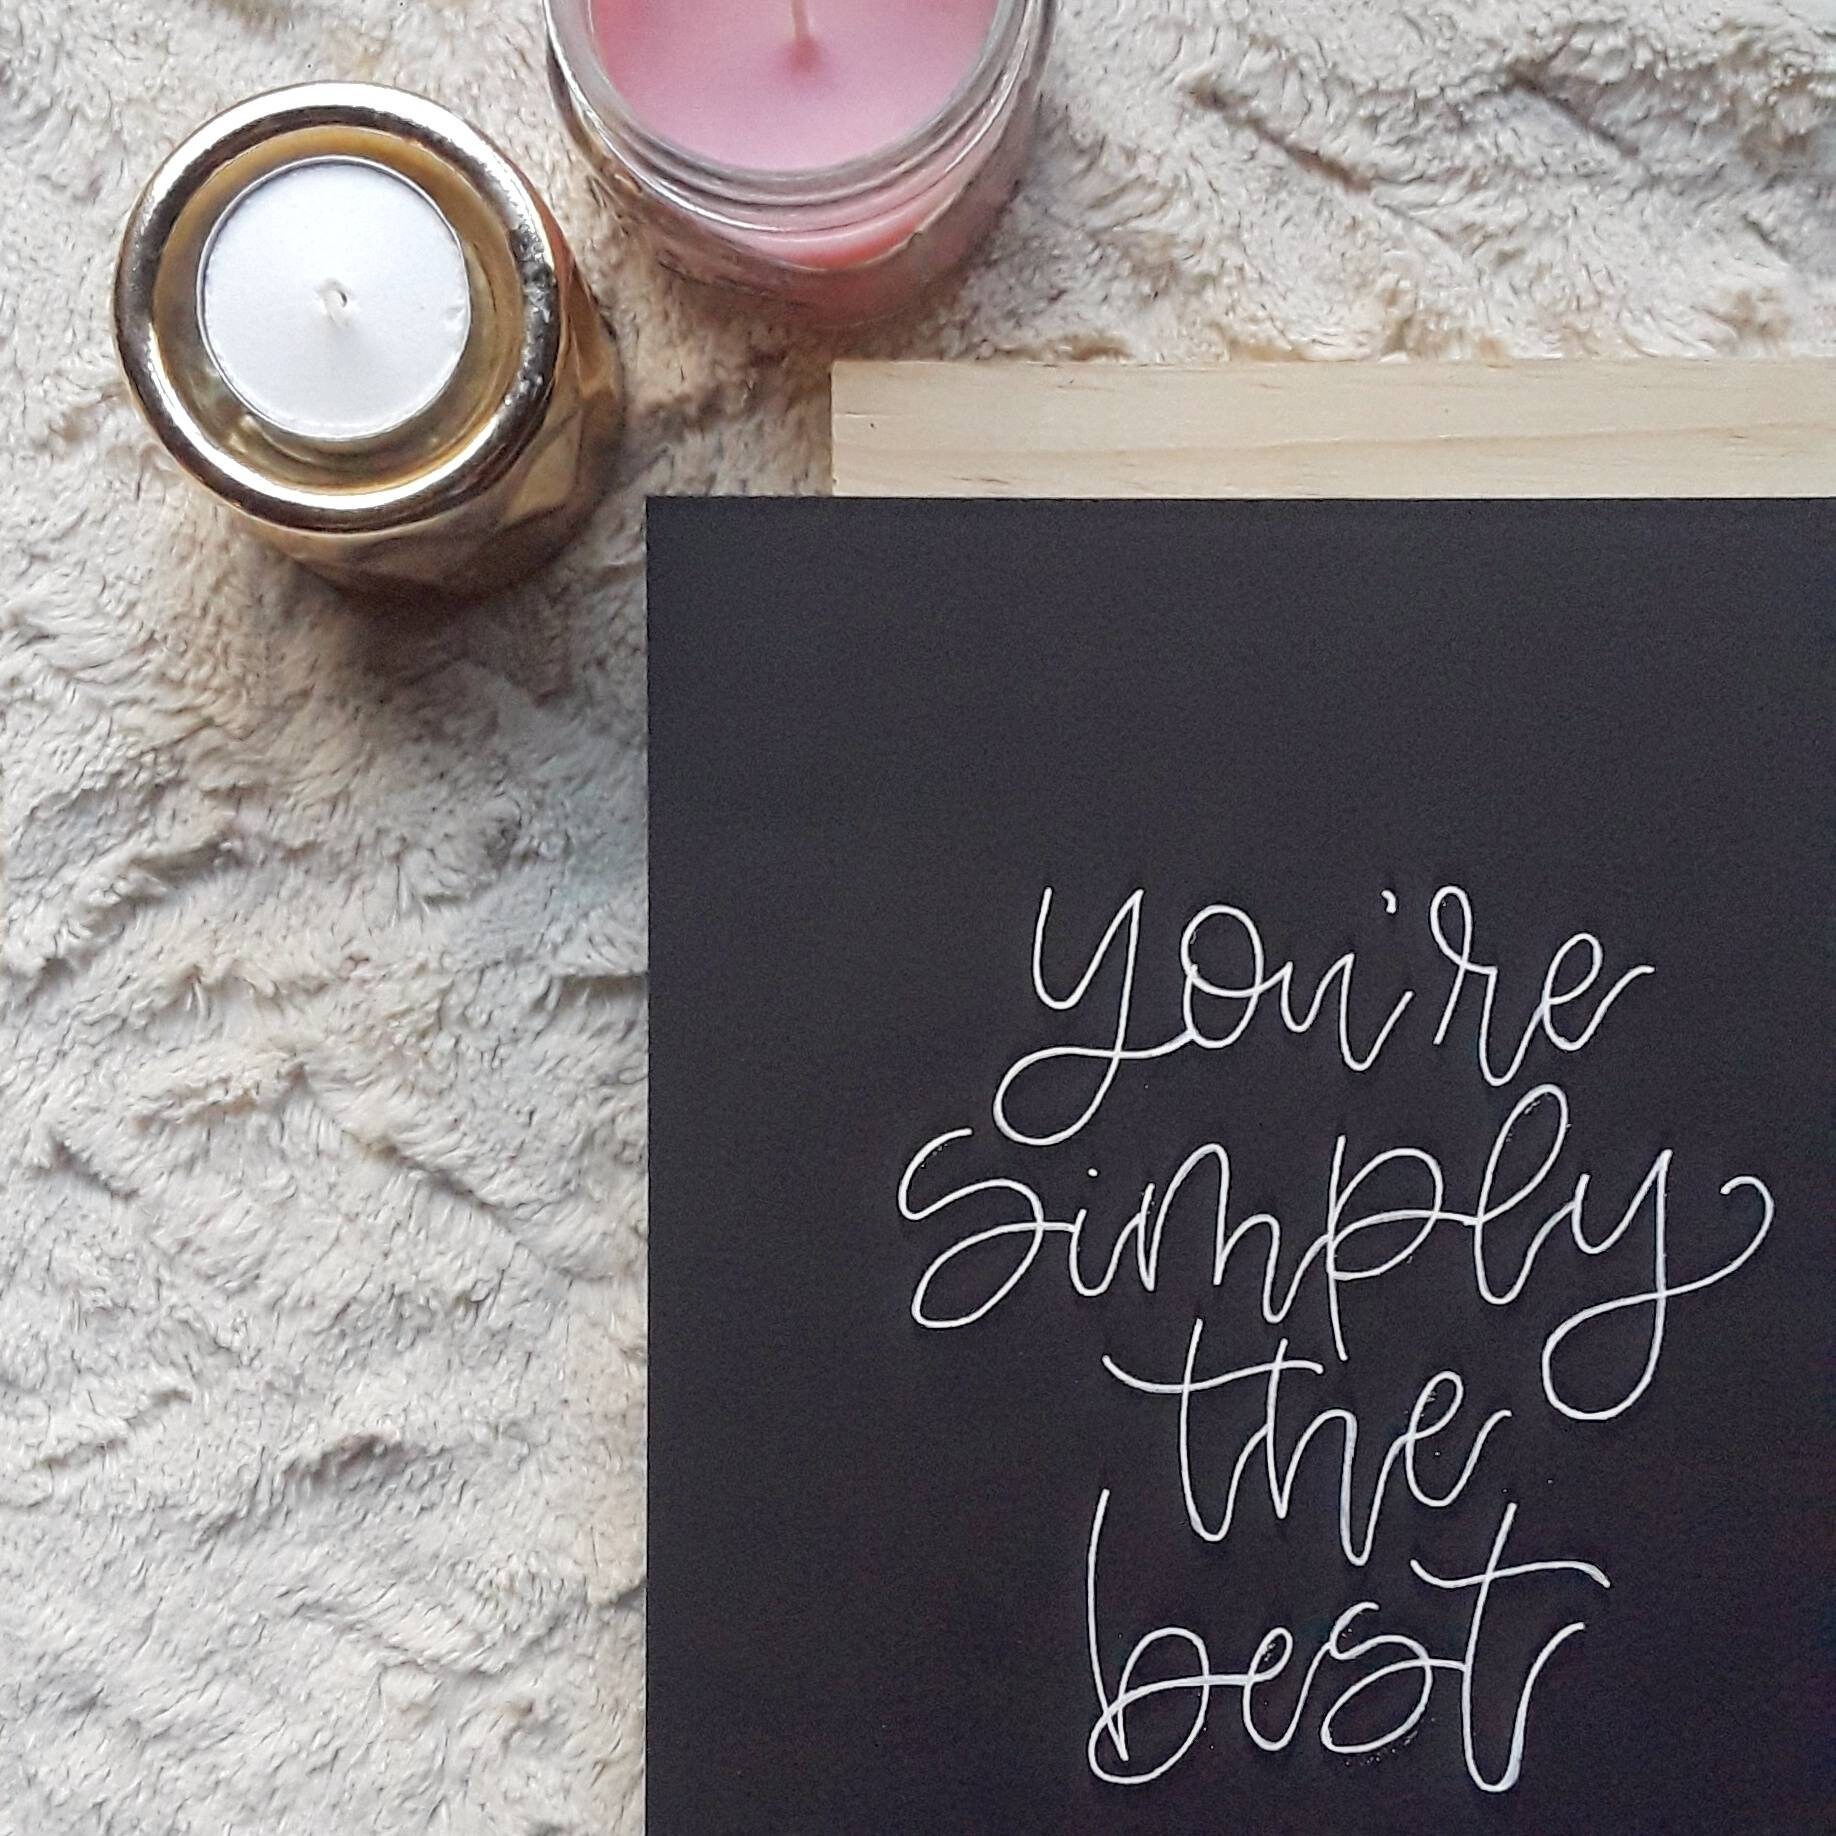 you're
simply
the
best